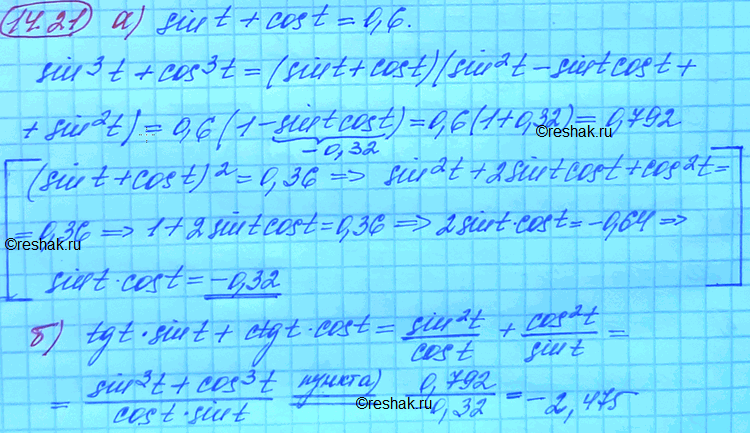 14.21 а) sint + cost = 0,6.
sin³t + cos³t = (sint + cost)(sin²t − sint cost +
+ sin²t) = 0,6 (1 − sint cost) = 0,6 (1 + 0,32) = 0,792
−0,32
©reshak.ru
(sint + cost)² = 0,36 ⇒ sin²t + 2sint cost + cos²t =
= 0,36 ⇒ 1 + 2 sint cost = 0,36 ⇒ 2sint·cost = −0,64 ⇒
©reshak.ru
sint·cost = −0,32
б) tgt·sint + ctgt·cost = sin²t/cost + cos²t/sint =
= (sin³t + cos³t)/(cost·sint) пункта) 0,792/−0,32 = −2,475
©reshak.ru